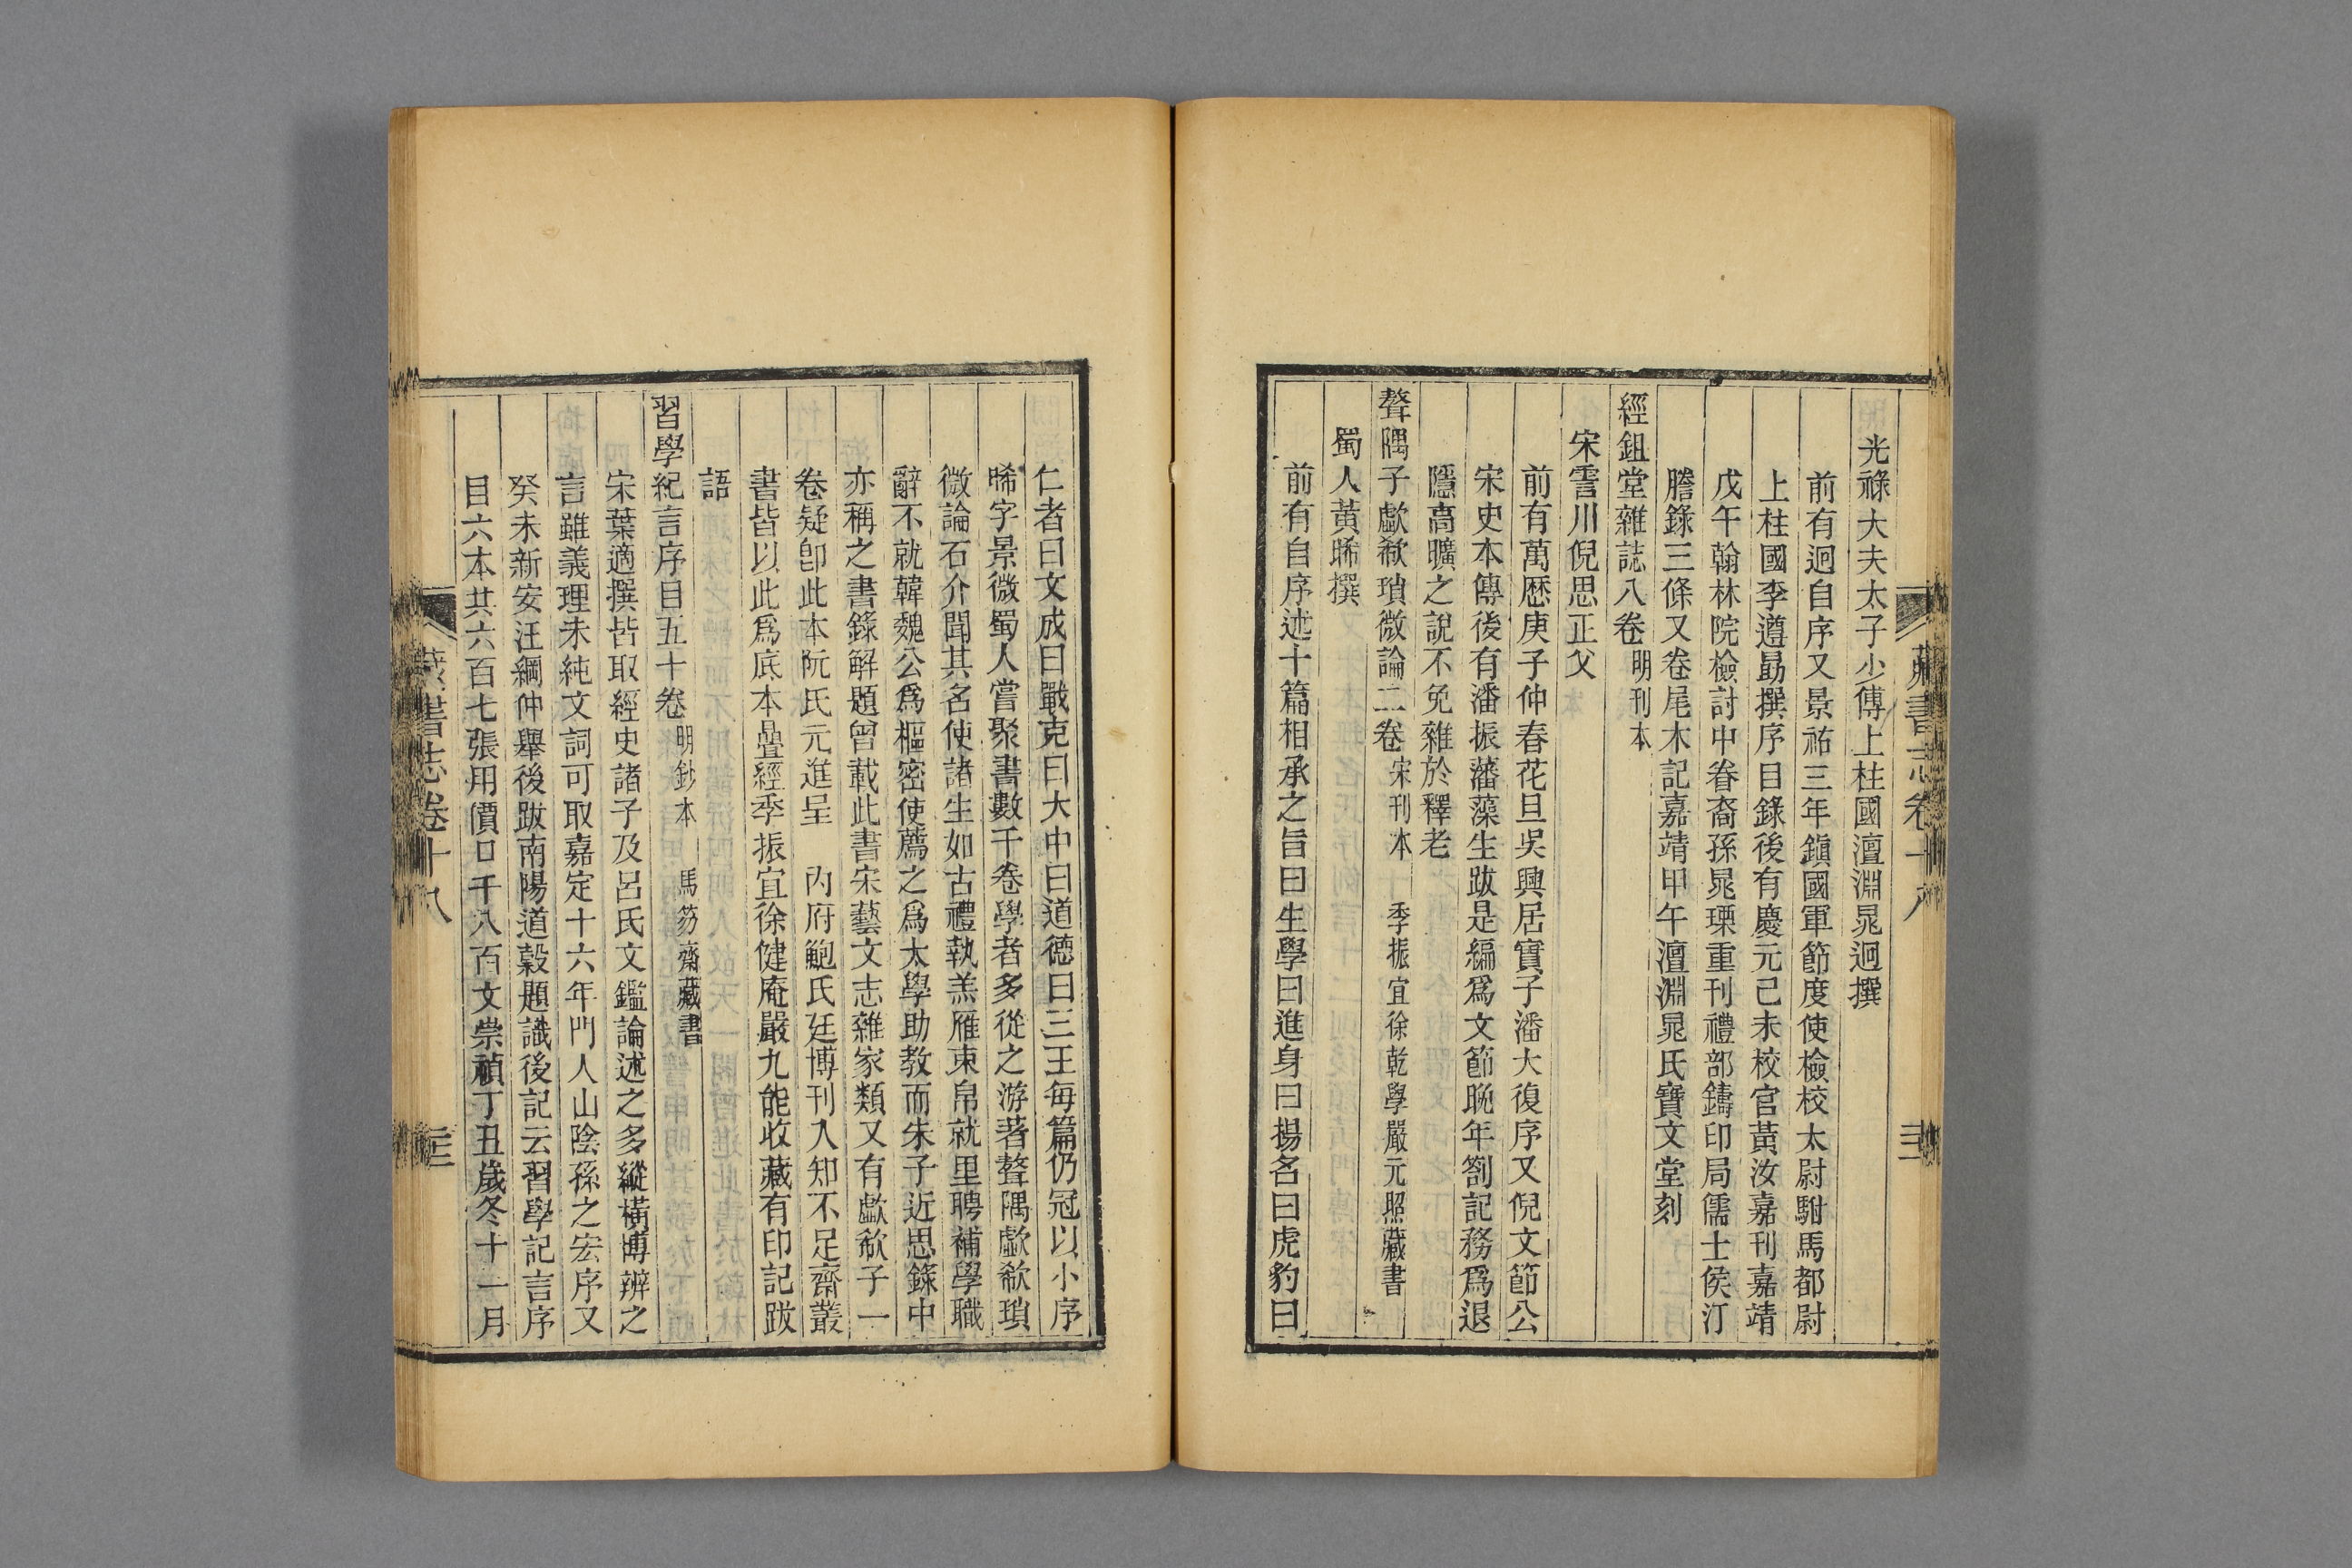 光祿大夫太子少傅上柱國澶淵晁迥撰
前有迥自序又景祐三年鎭國軍節度使檢校太尉駙馬都尉
上柱國李遵勗撰序目錄後有慶元己未校官黃汝嘉刊嘉靖
戊午翰林院檢討中眷裔孫晁瑮重刊禮部鑄印局儒士侯汀
謄錄三條又卷尾木記嘉靖甲午澶淵晁氏寶文堂刻
經鉏堂雜誌八卷 明刊本
宋霅川倪思正父
前有萬歷庚子仲春花旦吳興居實子潘大復序又倪文節公
宋史本傳後有潘振藩藻生跋是編爲文節晚年劄記務爲退
隱高曠之說不免雜於釋老
聱隅子歔欷瑣微論二卷 宋刊本 季振宜徐乾學嚴元照藏書
蜀人黃晞撰
前有自序述十篇相承之旨曰生學曰進身曰揚名曰虎豹曰
藏書志卷十八
仁者曰文成曰戰克曰大中曰道德曰三王每篇仍冠以小序
晞字景微蜀人嘗聚書數千卷學者多從之游著聱隅歔欷瑣
微論石介聞其名使諸生如古禮執羔雁束帛就里聘補學職
辭不就韓魏公爲樞密使薦之爲太學助敎而朱子近思錄中
亦稱之書錄解題曾載此書宋藝文志雜家類又有歔欷子一
卷疑卽此本阮氏元進呈 內府鮑氏廷博刊入知不足齋叢
書皆以此爲底本曡經季振宜徐健庵嚴九能收藏有印記跋
語
習學紀言序目五十卷 明鈔本 馬笏齋藏書
宋葉適撰皆取經史諸子及呂氏文鑑論述之多縱橫博辨之
言雖義理未純文詞可取嘉定十六年門人山陰孫之宏序又
癸未新安汪綱仲舉後跋南陽道穀題識後記云習學記言序
目六本共六百七張用價口千八百文崇禎丁丑歲冬十一月
藏書志卷十八